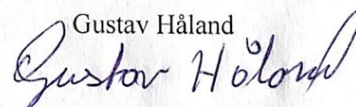 Gustav Håland
Gustav Håland